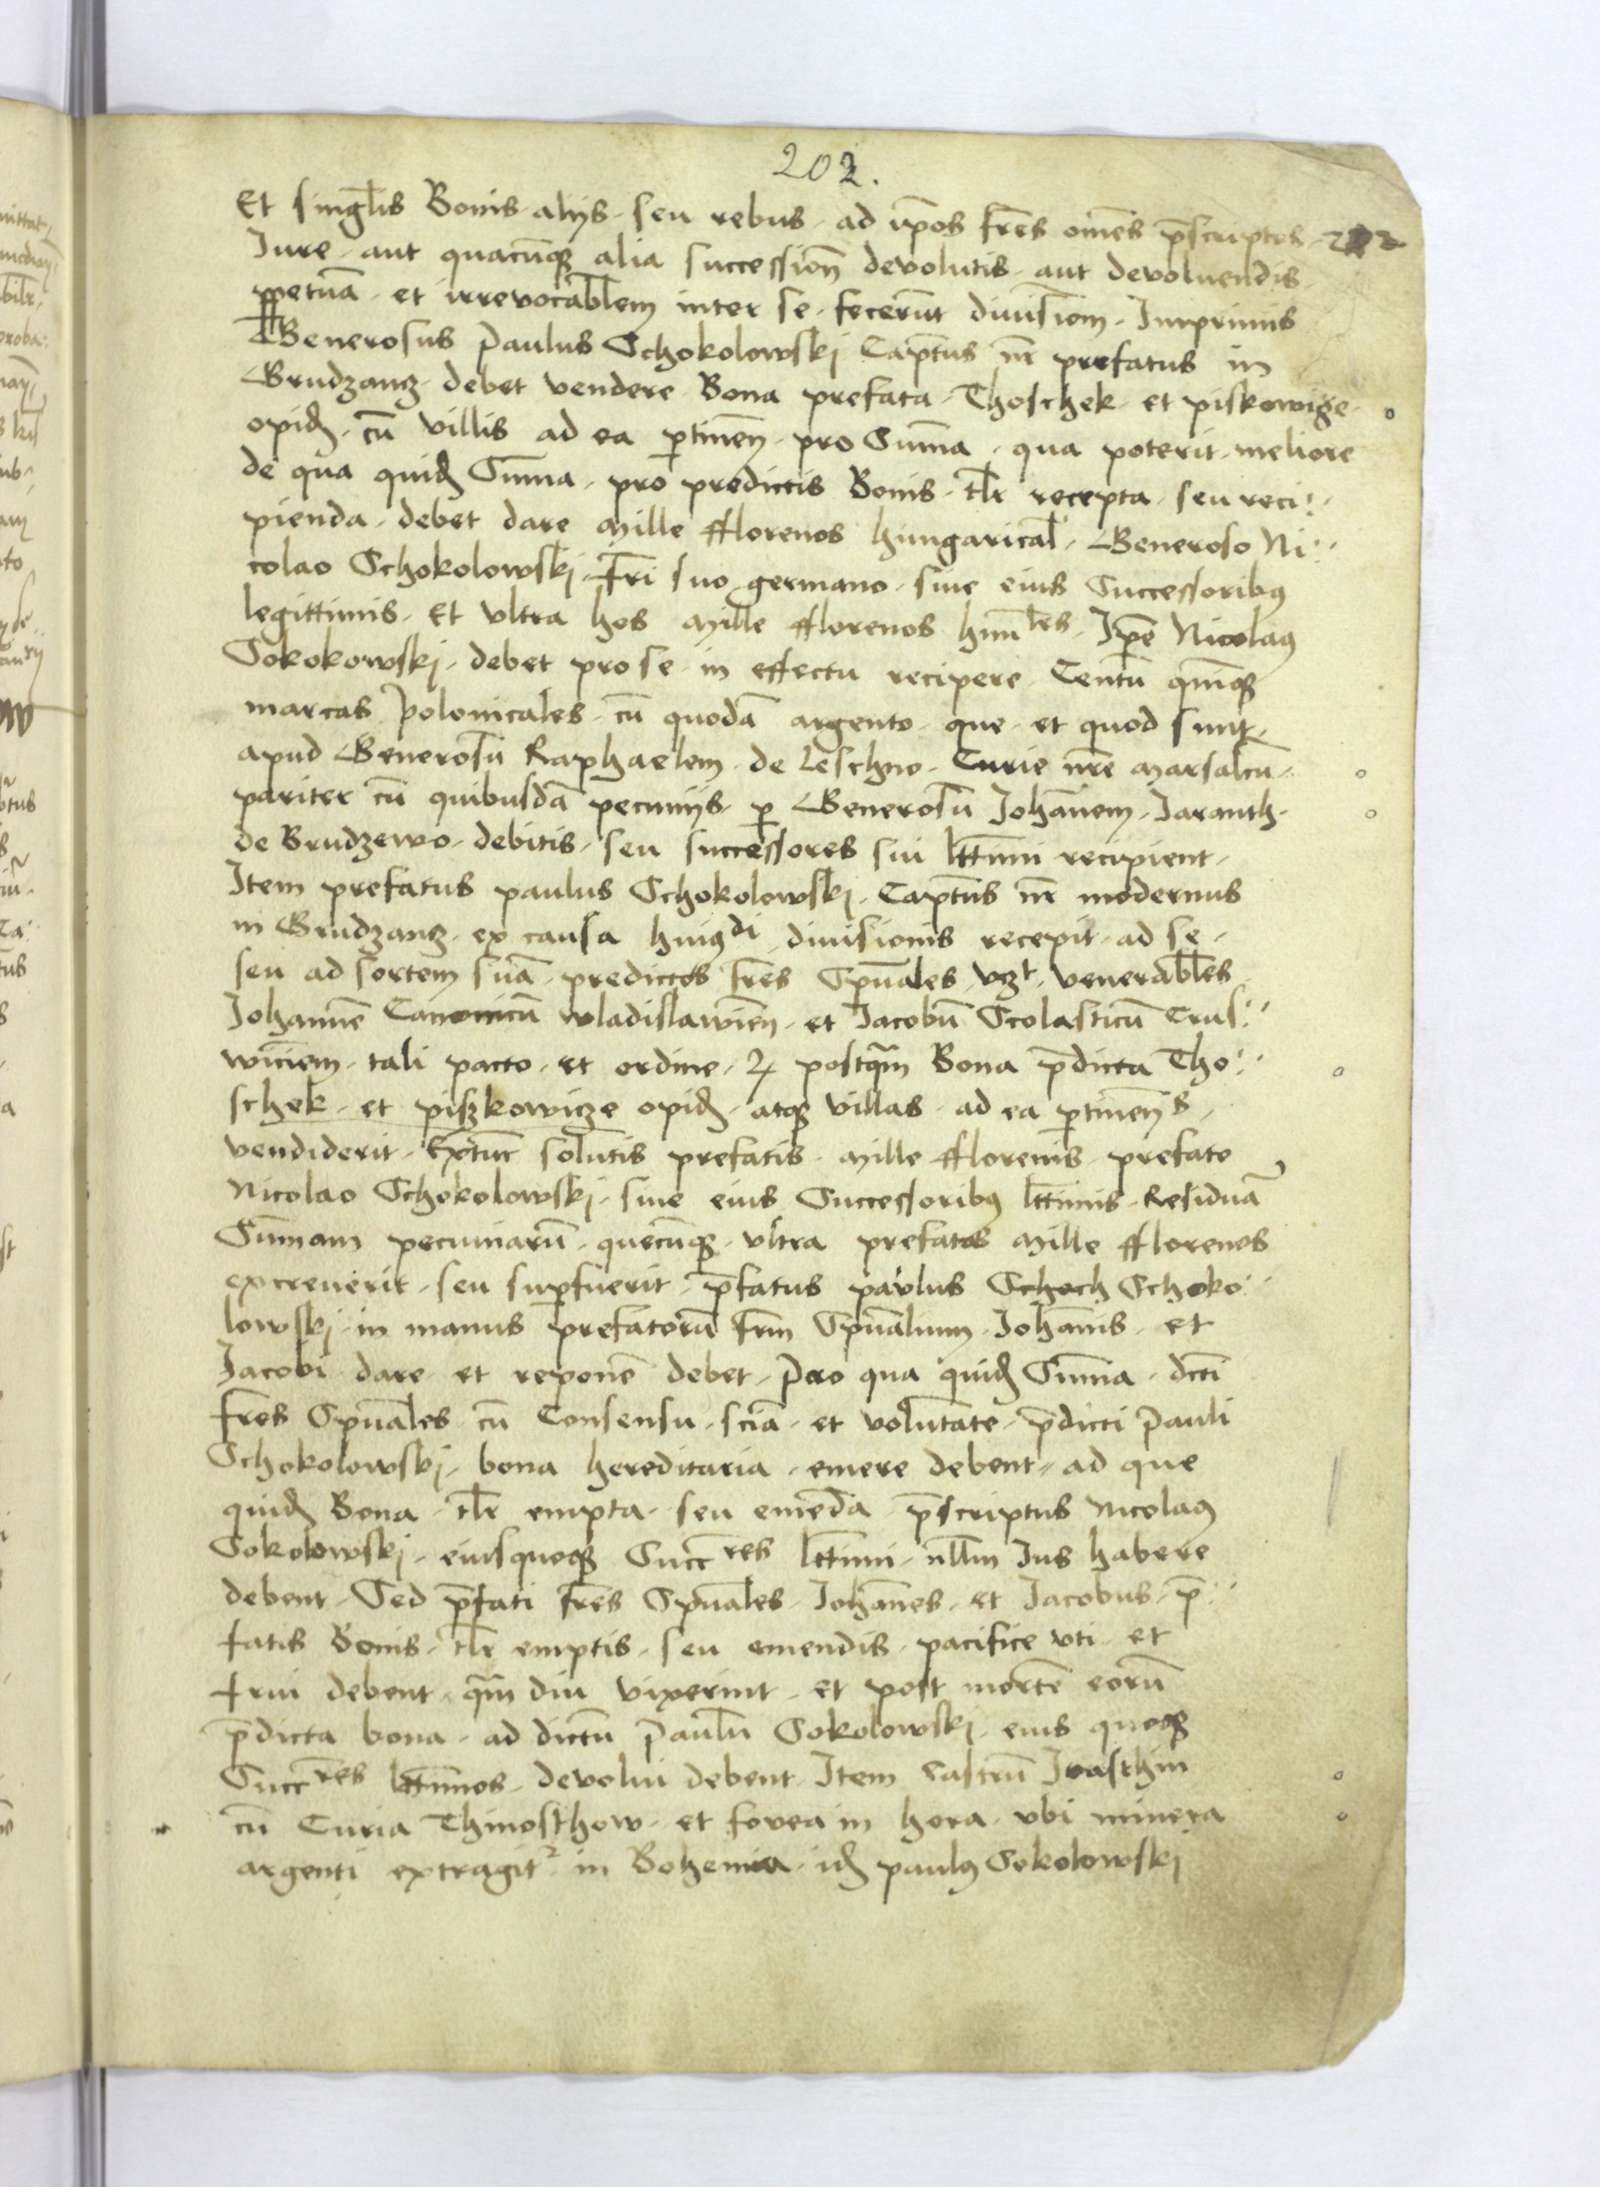 202.
Et singlis Bonis alijs seu rebus ad ipos fres omēs p̄scriptos 202
Iure aut quacūqȝ alia successioñ devolutis aut devoluendis
ꝑpetuā et irrevocablem inter se fecerūt divisiom Imprimis
Generosus Paulus Schokolowskj Captus nr̄ prefatus in
Grudzancz debet vendere Bona prefata Thoschek et piskowicze
opid cū villis ad ea ꝑtineñ pro Sum̄a qua poterit meliore
de qua quid Sum̄a pro predictis Bonis tlr recepta seu reci:
pienda debet dare Mille fflorenos hungarical Generoso Ni:
colao Schokolowskj Frī suo germano siue eius Successoribꝰ
legittimis Et vltra hos Mille fflorenos hun̄les Ipe Nicolaꝰ
Sokokowskj debet pro se in effectu recipere Centū quīqȝ
marcas Polonicales cū quodā argento que et quod sunt
apud Generosū Raphaelem de Leschno Curie nr̄e Marsalcū
pariter cū quibusdā pecunijs ꝑ Generosū Johānem Jaranth
de Brudzewo debitis seu successores sui lt̄timi recipient
Item prefatus paulus Schokolowskj Captus nr̄ modernus
in Grudzancz ex causa huiꝰdi diuisionis recepit ad se
seu ad sortem suā predictos fres Spūales vzt venerables
Johannē Canonicū wladislawieñ et Jacobū Scolasticū Crus:
wiciem tali pacto et ordine ꝙ postq̄m Bona p̄dicta Tho:
schek et piszkowicze opid atqȝ villas ad ea ꝑtineñs
vendiderit Extūc solutis prefatis Mille fflorenis prefato
Nicolao Schokolowskj siue eius Successoribꝰ lt̄timis Residuā
Sum̄am pecuniarū quecūqȝ vltra prefatos Mille fflorenos
excreuerit seu suꝑfuerit p̄fatus paulus Schoch Schoko:
lowskj in manus prefatorū frm Spūalium Johānis et
Jacobi dare et reponē debet Pro qua quid Sum̄a dcti
fres Spūales cū Consensu sciā et volūtate p̄dicti Pauli
Schokolowskj bona hereditaria emere debent ad que
quid Bona tlr empta seu emēda p̄scriptus Nicolaꝰ
Sokolowskj eiusquoqȝ Succres lt̄timi nllm Ius habere
debent Sed p̄fati fres Spūales Johānes et Jacobus p̄:
fatis Bonis tlr emptis seu emendis pacifice vti et
frui debent q̄m diu vixerint et post mortē eorū
p̄dicta bona ad dictū Paulū Sokolowskj eius quoqȝ
Succres lt̄timos devolui debent Item Castrū Jvasthin
cū Curia Thinosthow et fovea in hora vbi minera
argenti extragitr in Bohemia id paulꝰ Sokolowskj